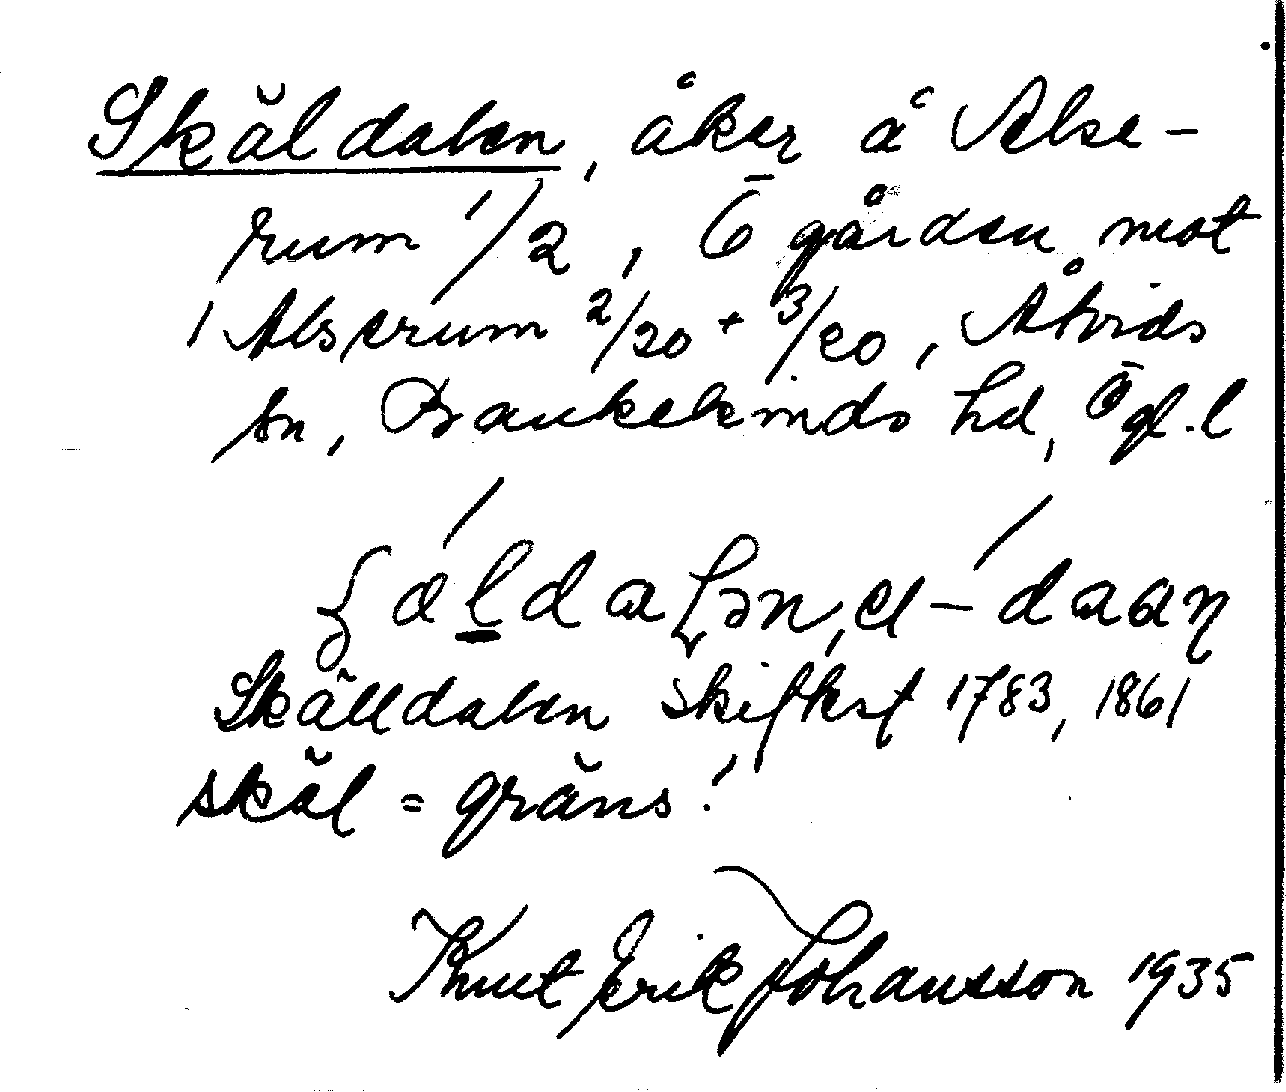 Skäldalen, åker å Alse-
rum 1/2, Ö gården mot
Alserum 2/20 + 3/20, Åtvids
sn, Bankekinds hd, Ögl. l
Skälldalen skifteskt 1783, 1861
skäl = gräns!
Knut Erik Johansson 1935